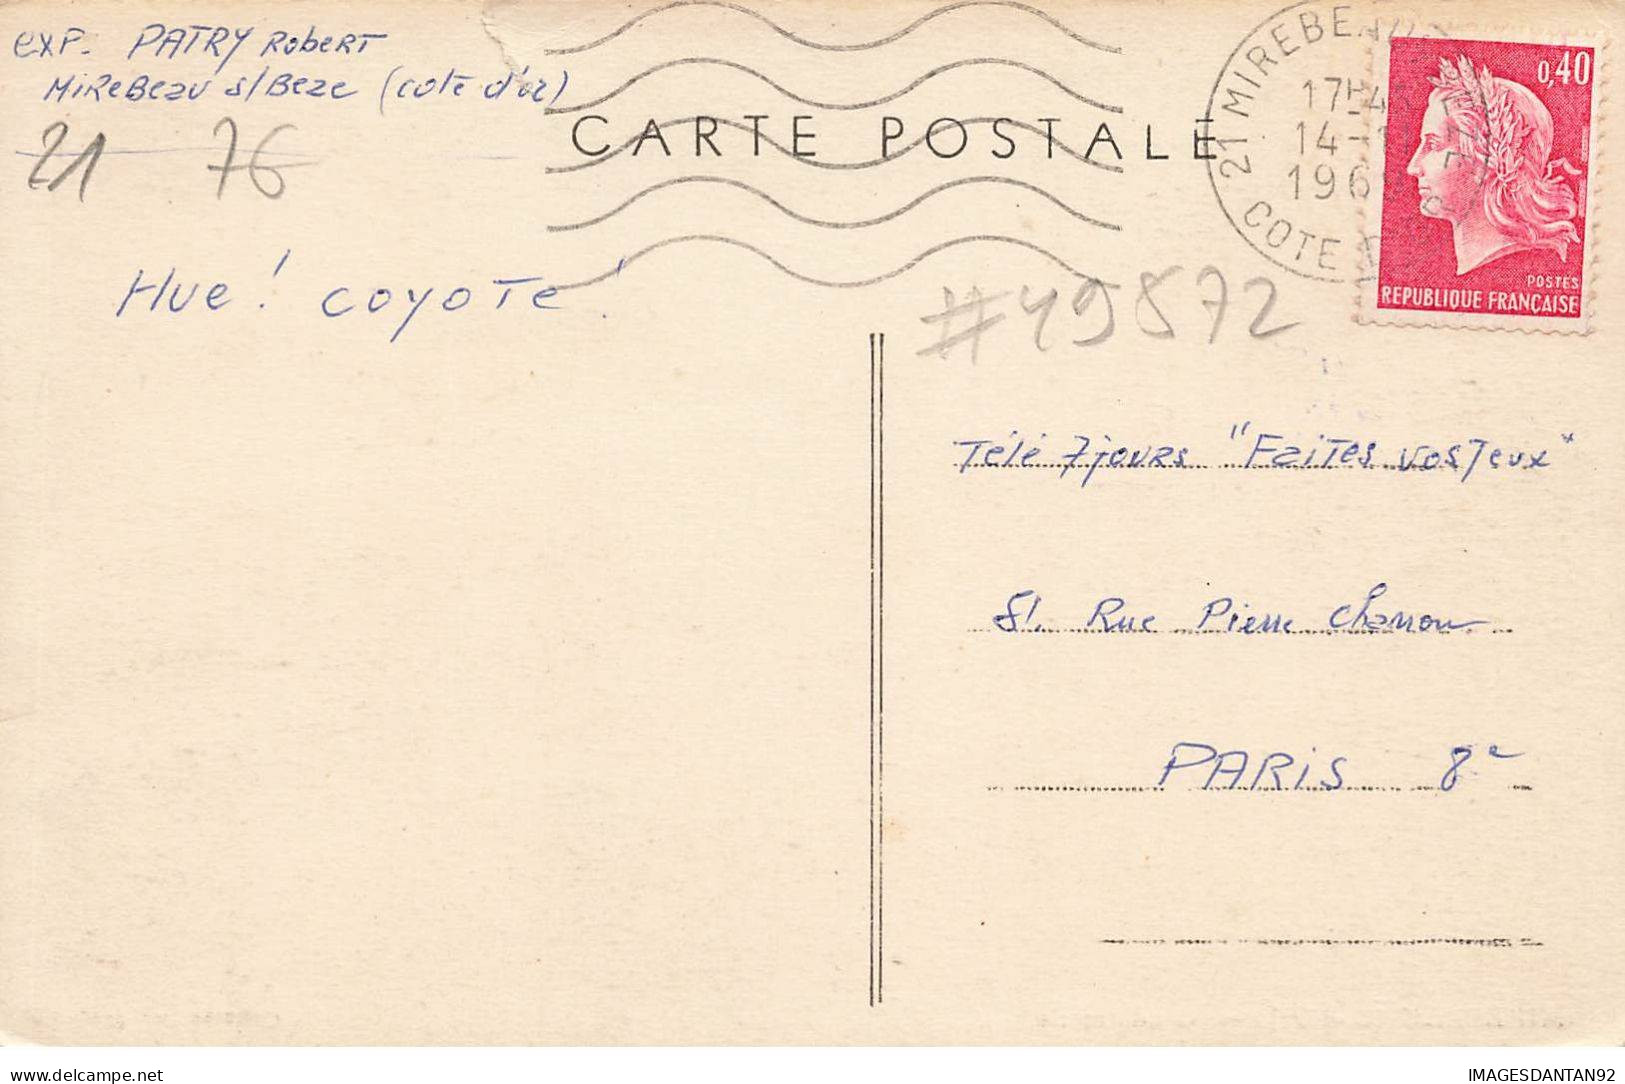 exp. PATRY Robert
MiReBeau s/Beze (cote d'or)
21 76
CARTE POSTALE
21 MIREBEAU
COTE D'OR
17H45
14-1
196
0,40
POSTES
REPUBLIQUE FRANÇAISE
Hue! coyote!
#49872
Télé 7 jours "Faites vos Jeux"
51. Rue Pierre Charron
PARIS 8e
IMAGESDANTAN92